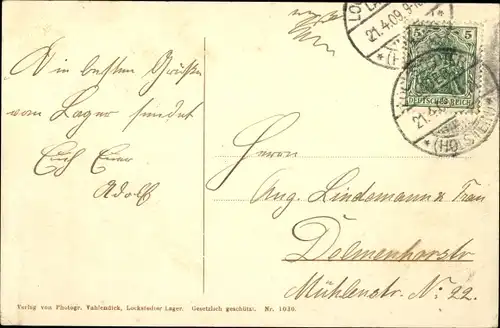 Die besten Grüße
vom Lager sendet
Euch Euer
Adolf
Herrn
Aug. Lindemann & Frau
Delmenhorst
Mühlenstr. N. 22.
5 5
DEUTSCHES REICH
21.4.09.
(HOLSTEIN)
Verlag von Photogr. Vahlendick, Lockstedter Lager. Gesetzlich geschützt. Nr. 1030.